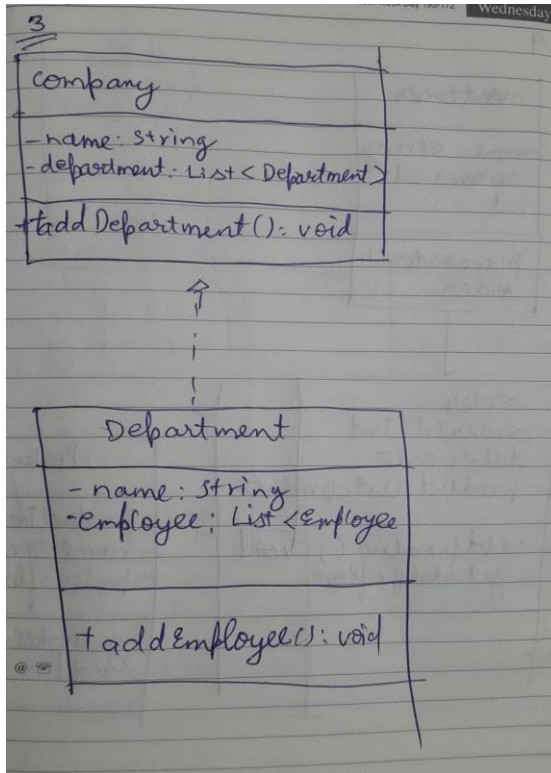 Wednesday
3
Company
- name: String
- department: List < Department >
+ add Department (): void
Department
- name: String
- Employee: List < Employee
+ add Employee(): void